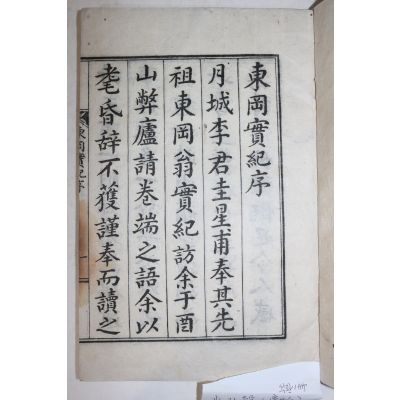 東岡實紀序
月城李君圭星甫奉其先
祖東岡翁實紀訪余于酉
山弊廬請卷端之語余以
耄昏辞不獲謹奉而讀之
東岡實紀序